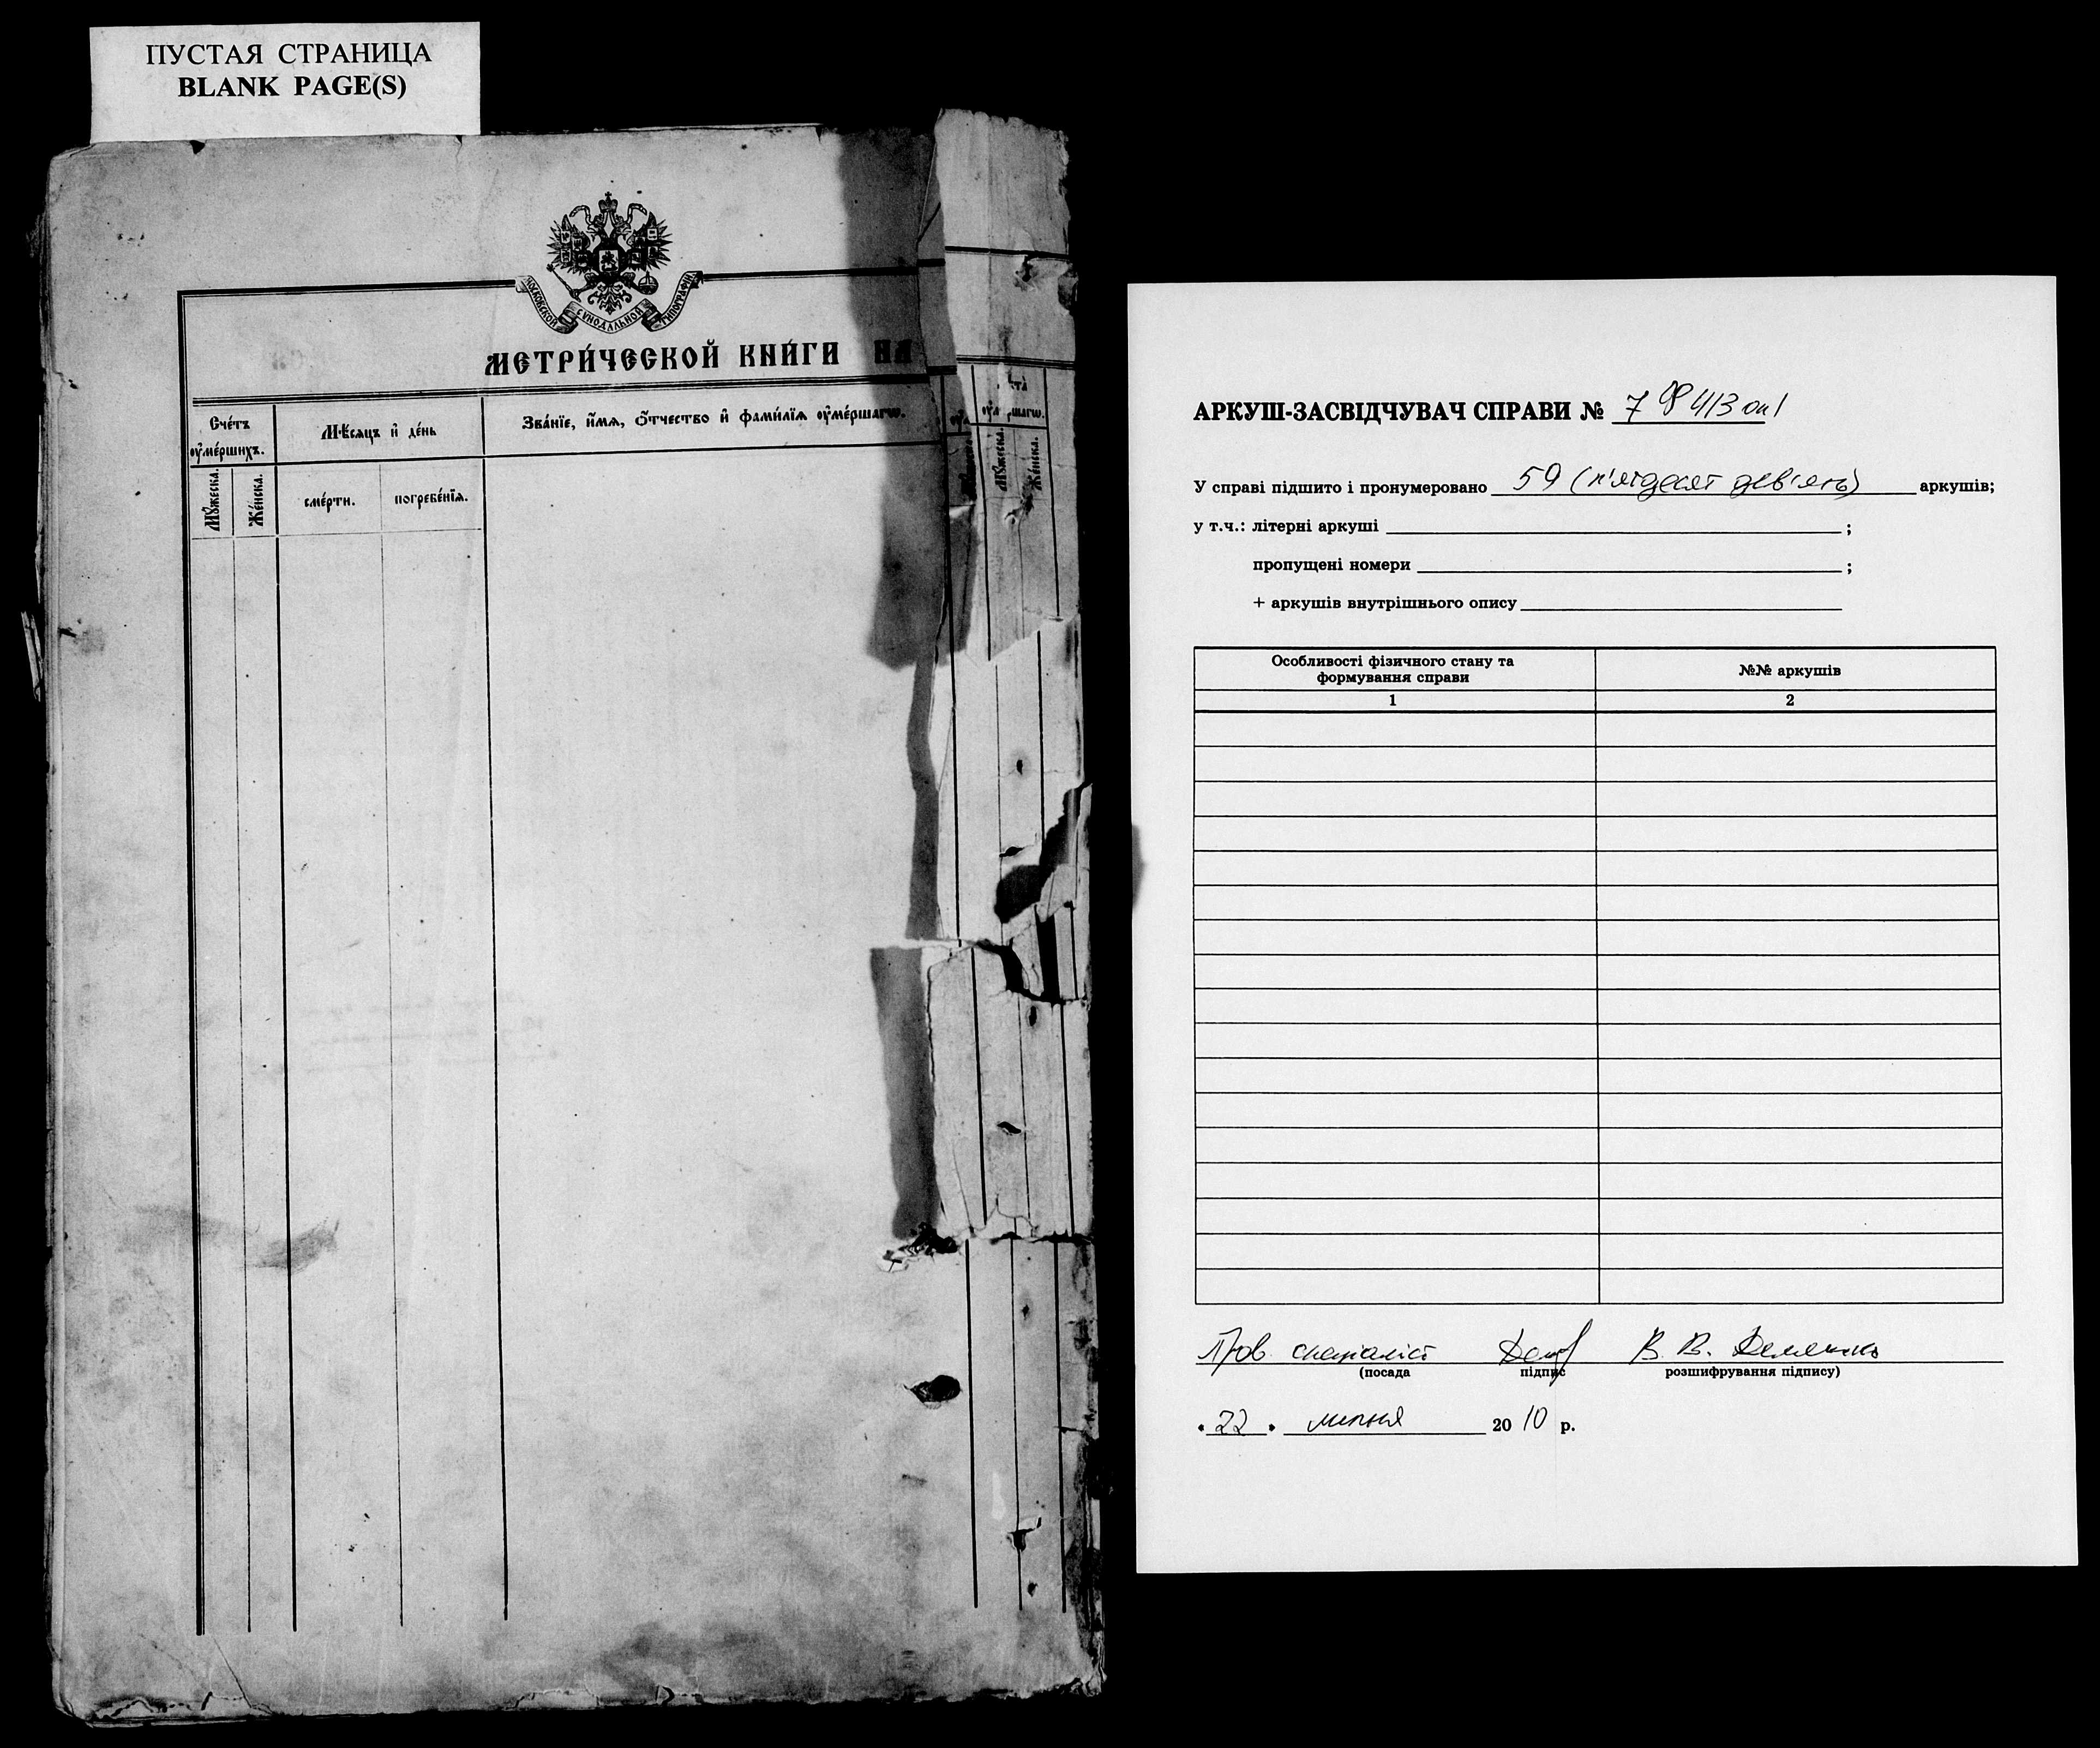 ПУСТАЯ СТРАНИЦА
BLANK PAGE(S)
МОСКОВСКОЙ СѴНОДАЛЬНОЙ ТИПОГРАФІИ
МЕТРИ́ЧЕСКОЙ КНИ́ГИ НА
Сче́тъ
оу҆ме́ршихъ.
Мѣ́сяцъ и҆ де́нь
Зва́нїе, и҆́мѧ, ѻ҆́тчество и҆ фами́лїѧ оу҆ме́ршагѡ.
Мꙋ́жеска.
Же́нска.
сме́рти.
погребе́нїѧ.
Мꙋ́жеска.
Же́нска.
АРКУШ-ЗАСВІДЧУВАЧ СПРАВИ № 7 ф 413 оп 1
У справі підшито і пронумеровано 59 (п'ятдесят дев'ять) аркушів;
у т.ч.: літерні аркуші ;
пропущені номери ;
+ аркушів внутрішнього опису
Особливості фізичного стану та
формування справи
№№ аркушів
1
2
Пров. спеціаліст В. В.
(посада
підпис
розшифрування підпису)
" 22 " липня 20 10 р.